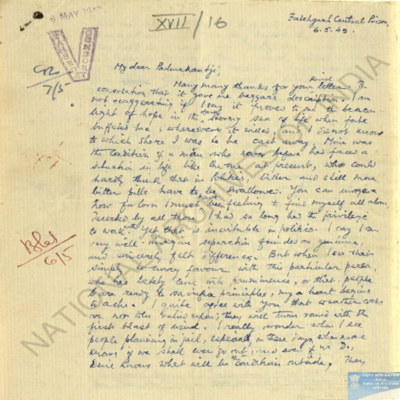 8 MAY
XVII/16
Fatehgarh Central Prison,
6.5.45.
CR
7/5
My dear Padmakantji,
Many many thanks for your kind letter. The
consolation that it gave me beggars description. I am
not exaggerating if I say it proves to me the beacon
light of hope in the stormy sea of life when fate
buffets me, wherever it wishes and I do not know
to which shore I was to be cast away. Mine was
the condition of a man who never before has faced a
situation in life like the one at present, who could
hardly think that in that still more
bitter pills have to be swallowed. You can imagine
how forlorn I must be feeling to find myself all alone,
by all those I had so long had the privilege
to work with. Yet that is inevitable in politics. I say I can
very well imagine separation founded on genuine
and sincerely felt difference. But when I see that
simply to curry favour with this particular person
who has lately come into prominence, or that, people
are ready to sacrifice principles, my heart begins
to ache. I quite agree with you that weather cocks
are not to be relied upon; they will turn round with the
first blast of wind. I really wonder when I see
people planning in jail, especially in these days when no one
knows if we shall ever go out, and even if we do,
knows what will be the condition outside. They
6/5
NATIONAL ARCHIVES OF INDIA